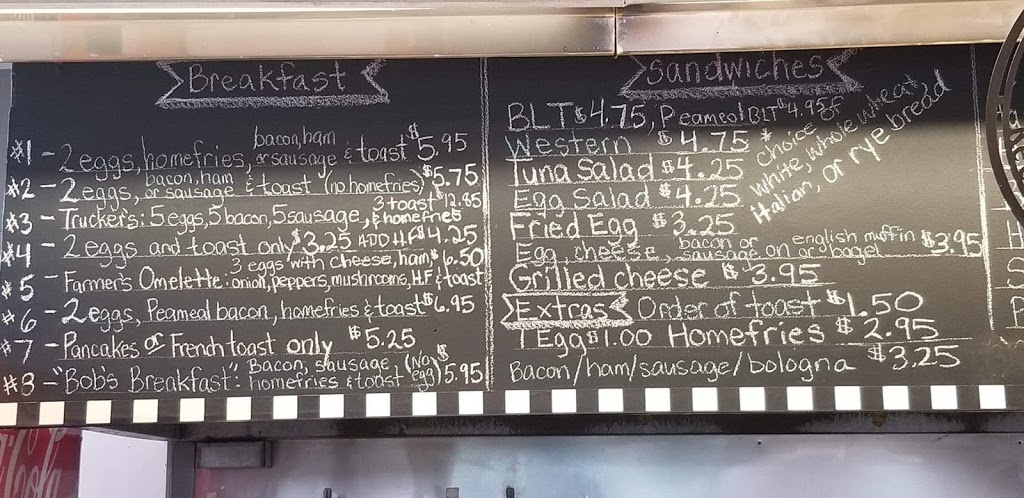 Breakfast
#1 - 2 eggs, homefries, bacon, ham or sausage & toast $5.95
#2 - 2 eggs, bacon, ham or sausage & toast (no homefries) $5.75
#3 - Truckers: 5 eggs, 5 bacon, 5 sausage, 3 toast & homefries $12.85
#4 - 2 eggs and toast only $3.25 ADD H.F $4.25
#5 - Farmer's Omelette: 3 eggs with cheese, ham, onion, peppers, mushrooms, H.F & toast $6.50
#6 - 2 eggs, Peameal bacon, homefries & toast $6.95
#7 - Pancakes or French toast only $5.25
#8 - "Bob's Breakfast": Bacon, sausage homefries & toast (No egg) $5.95
Sandwiches
BLT $4.75, Peameal BLT $4.95
Western $4.75
Tuna Salad $4.25
Egg Salad $4.25
Fried Egg $3.25
* choice of
White, whole wheat,
Italian, or rye bread
Egg, cheese, bacon or sausage on english muffin or bagel $3.95
Grilled cheese $3.95
Extras Order of toast $1.50
1 Egg $1.00 Homefries $2.95
Bacon/ham/sausage/bologna $3.25